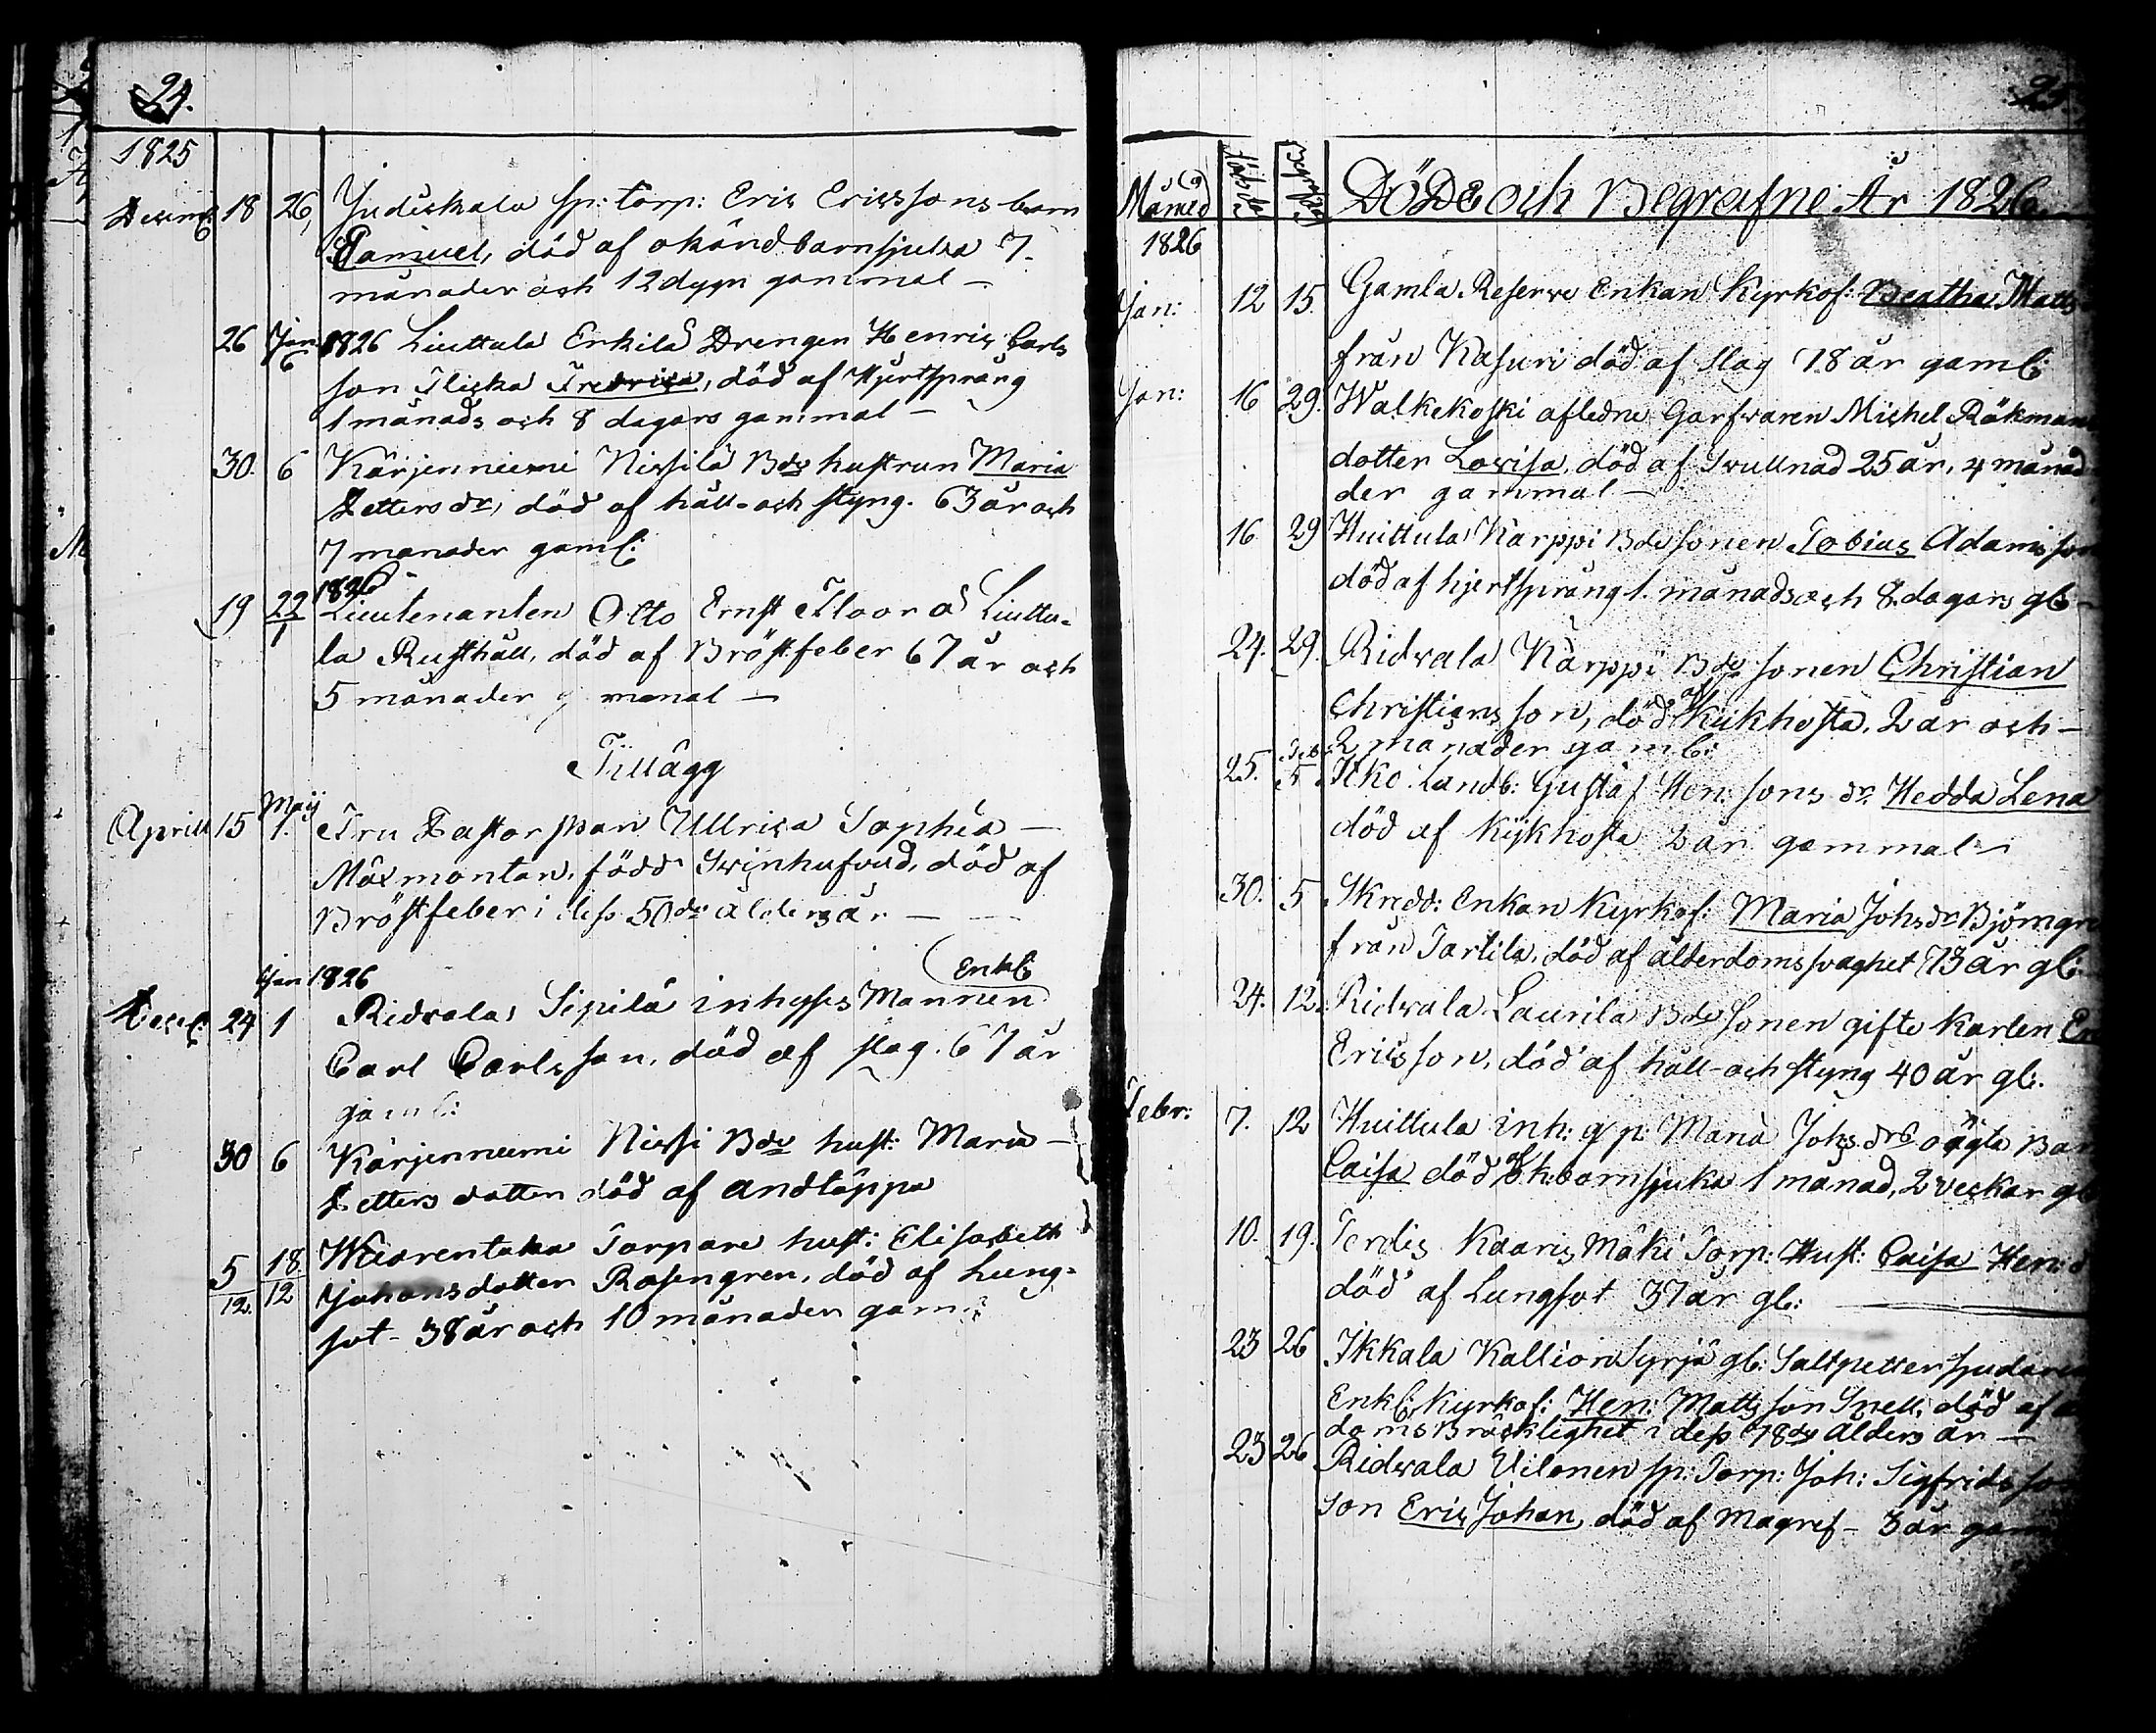 24.
1825
Decemb 18 26, Judickala sp: torp: Eric Ericssons barn
Samuel, död af okänd barnsjuka 7.
månader och 12 dygn gammal –
26 Jan 6 1826 Liuttula Erkilä Drengen Henric Carls
son Flicka Fredrica, död af Hjertsprång
1 månads och 8 dagars gammal –
30. 6 Kärjenniemi Nissilä Bde hustrun Maria
Petters dr, död af håll- och styng. 63 år och
7 månader gaml:
1826
19 22/1 Lieutenanten Otto Ernst Floor å Liuttu-
la Rusthåll, död af Bröstfeber 67 år och
5 månader g mmal –
Tillägg
Aprill 15 Maij 1. Fru Pastorskan Ullrica Sophia –
Mäxmontan, född Svinhufvud, död af
Bröstfeber i dess 50de ålders år –
Jan 1826
Enkl:
Decemb: 24 1 Ridvala, Sipilä inhyses Mannen
Carl Carlsson, död af slag. 67 år
gaml:
30 6 Kärjenniemi Nissi Bde hust: Maria –
Petters dotter död af andtäppa
5/12. 18/12 Wuorentaka Torpare hust: Elisabeth
Johansdotter Rosengren, död af Lung-
sot – 38 år och 10 månader gam:
25
Månad Död Begrafne Döde och Begrafne År 1826
1826
Jan: 12 15. Gamla Reserve Enkan Kyrkof: Beatha Matts
från Kasuri död af slag 78 år gaml:
Jan: 16 29. Walkekoski afledne Garfvaren Michel Räkman
dotter Lovisa, död af Svullnad 25 år, 4 månad
der gammal –
16. 29 Huittula Kärppi Bde Sonen Tobias Adamsson
död af hjertsprång 1. månads och 8. dagars gl: –
24. 29. Ridvala Kärppi Bde sonen Christian
Christiansson, död af Kikhosta, 2 år och –
2 månader gaml:
25. Feb: 5. Icko Landb: Gustaf Hen: sons dr. Hedda Lena
död af Kikhosta 2 år gammal –
30. 5 Skredd: Enkan Kyrkof: Maria Johsdr Björngre
från Tarttila, död af ålderdomssvaghet 73 år gl:
24. 12. Ridvala Laurila Bde Sonen gifte Karlen Er
Ericsson, död af håll- och styng 40 år gl:.
Febr: 7. 12 Huittula inh: q/p: Maria Johs drs oägta Bar
Caisa död af ok: barnsjuka 1 månad, 2 veckor gl
10. 19. Terdis Kaaris Mäki Torp: Hust: Caisa Hen: d
död af Lungsot 37 år gl:
23 26 Ikkala Kallion Syrjä gl: Saltpettersjudaren
Enkl: Kyrkof: Hen: Mattsson Snell, död af å
doms Bräcklighet i dess 78de ålders år –
23 26 Ridvala Uilonen sp: Torp: Joh: Sigfridsson
son Eric Johan, död af Magref – 3 år gam